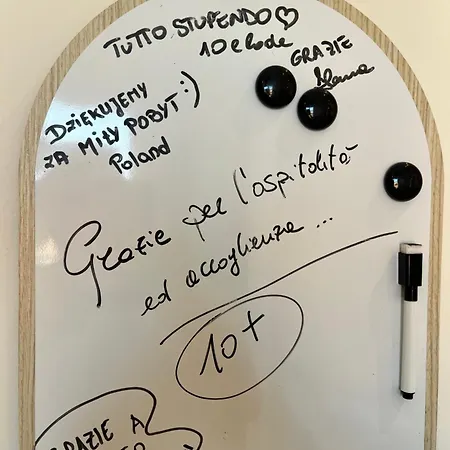 TUTTO STUPENDO♡
10 e lode
GRAZIE
DZIĘKUJEMY
ZA MIŁY POBYT :)
Poland
Grazie per l'ospitalità
ed accoglienza ...
10+
GRAZIE A